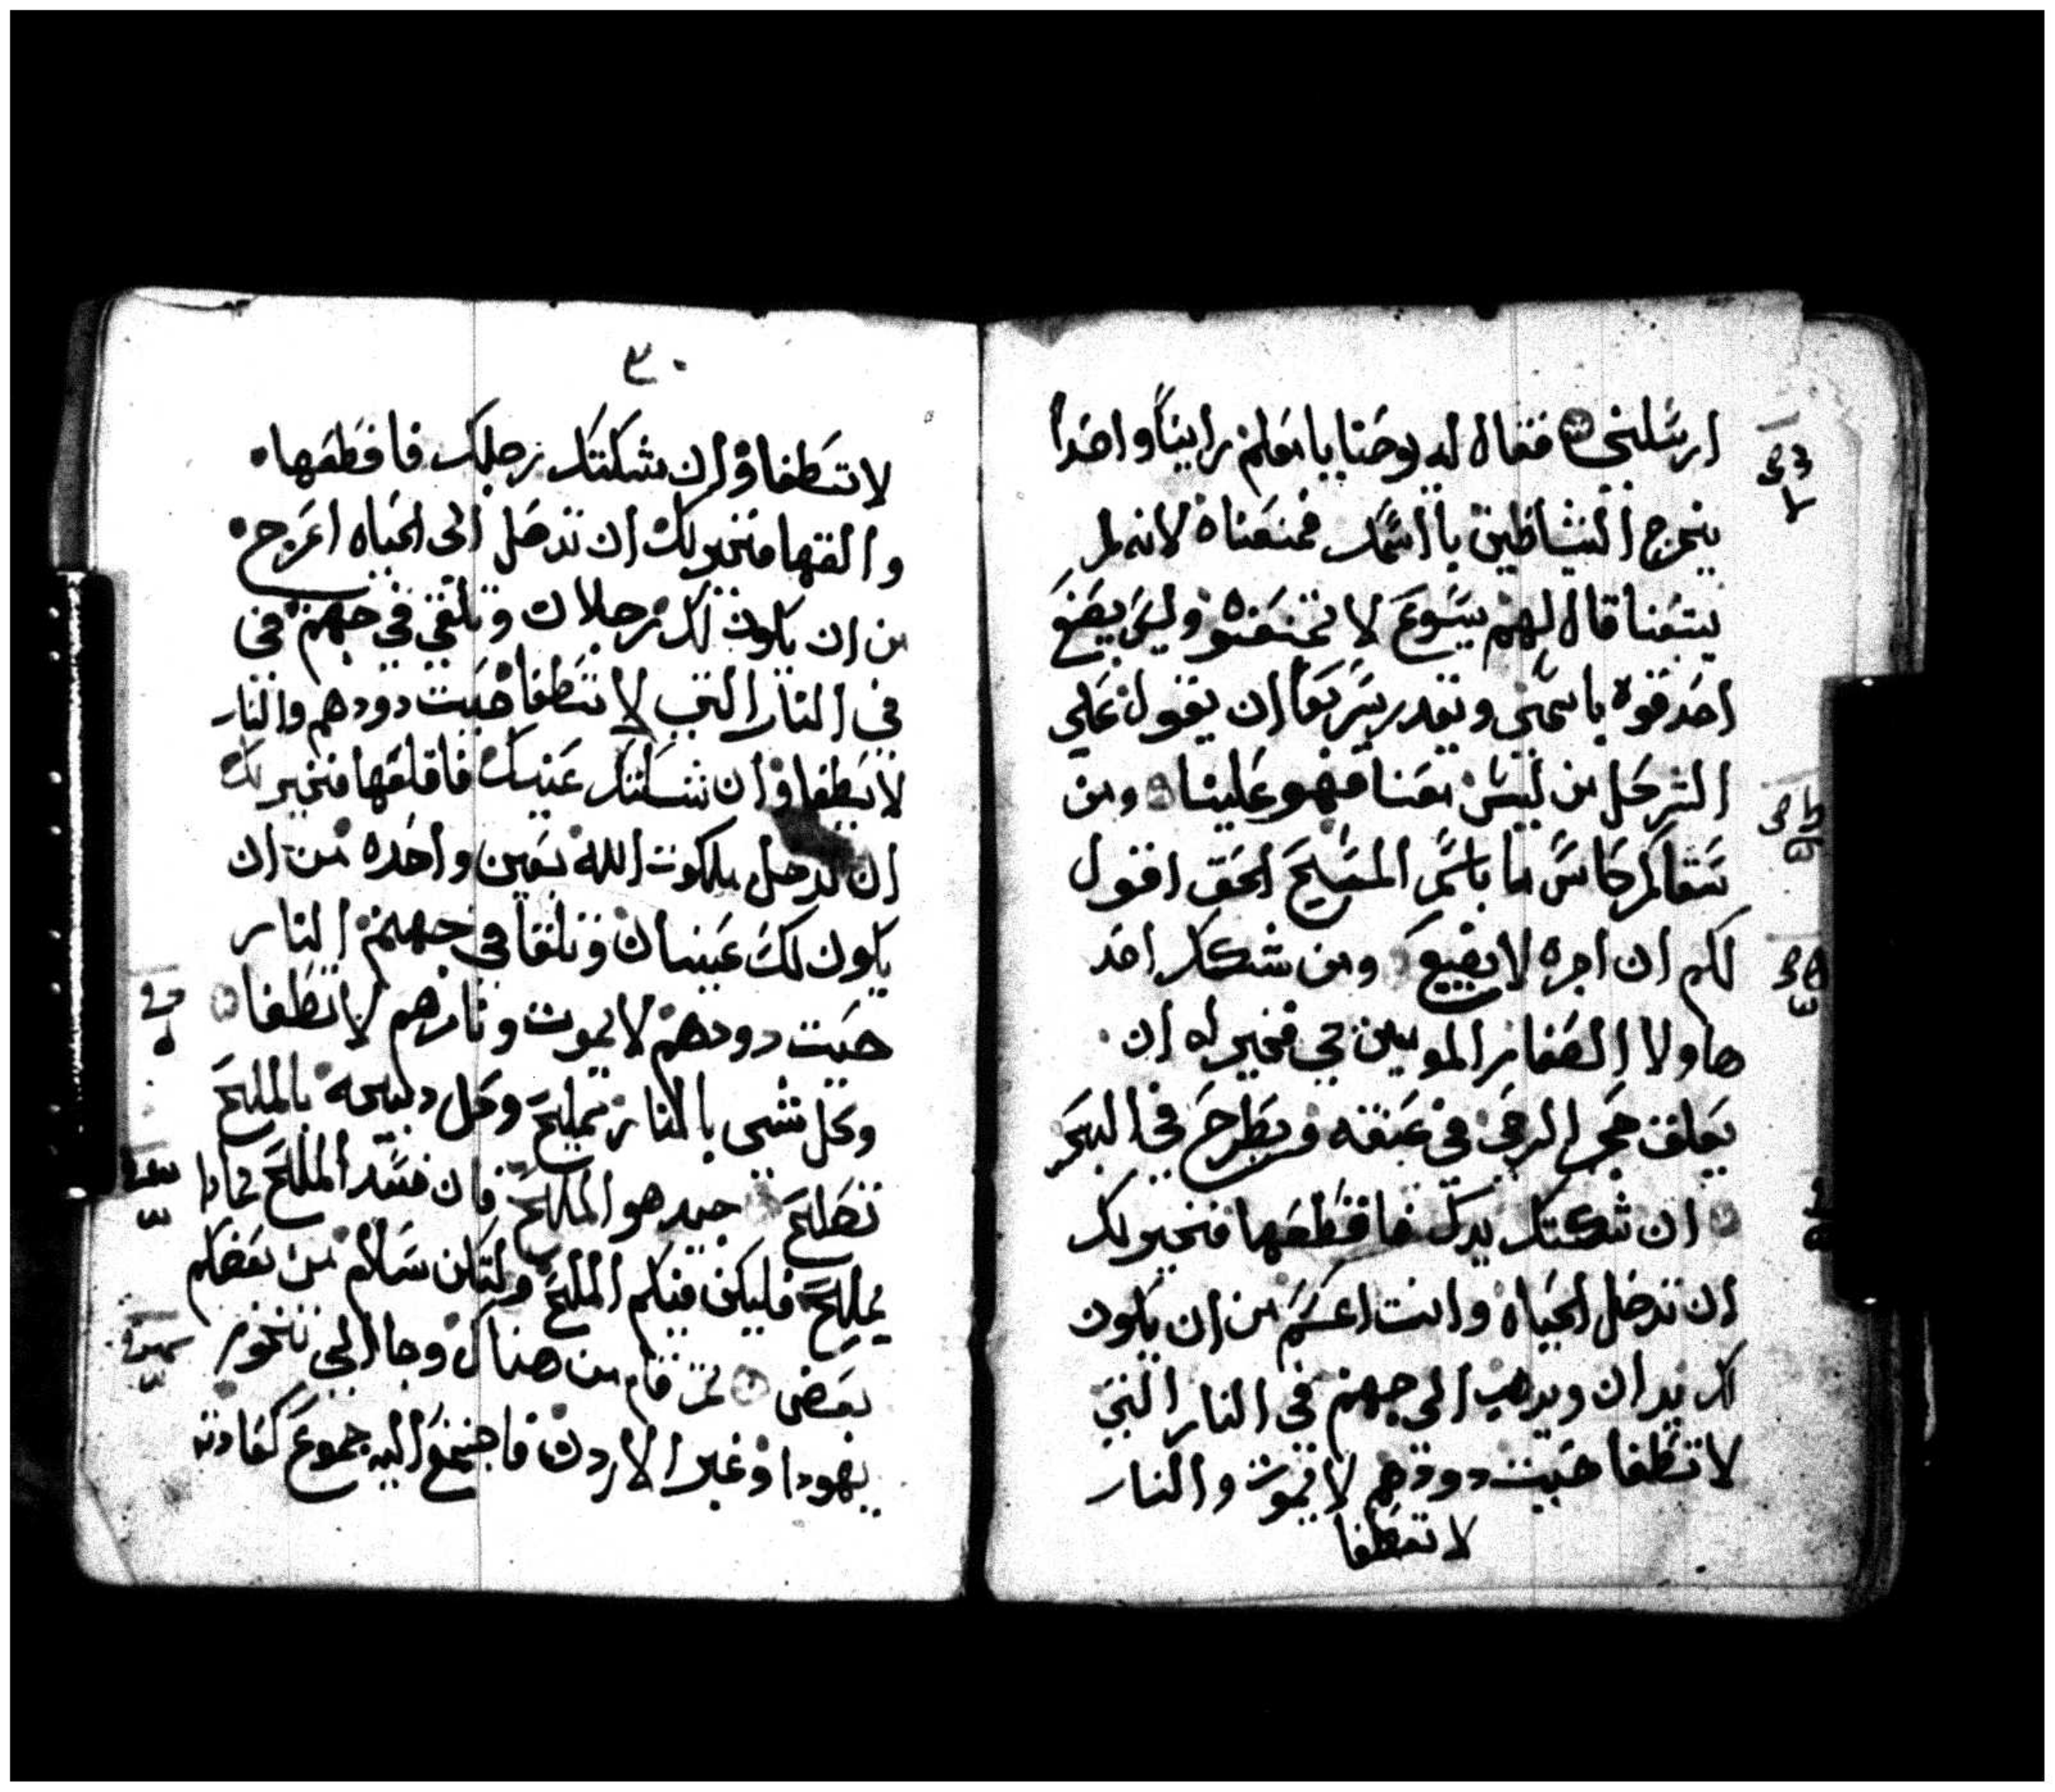 ارسلني فقال له يوحنا يا معلم راينا واحدا
يخرج الشياطين بااسمك فمنعناه لانه لم
يتبعنا قال لهم يسوع لا تمنعوه وليس يصنع
احد قوه باسمي ويقدر سريعا ان يقول علي
الشر كل من ليس معنا فهو علينا ومن
سقاكم كاس ما باسم المسيح الحق اقول
لكم ان اجره لا يضيع ومن شكك احد
هاولا الصغار المومنين بي فخير له ان
يعلق حجر الرحى في عنقه ويطرح في البحر
ان شككتك يدك فاقطعها فخير لك
ان تدخل الحياه وانت اعسم من ان يكون
لك يدان ويذهب الى جهنم في النار التي
لا تطفا حيت دودهم لا يموت والنار
لا تطفا
٣٠
لا تطفا وان شككتك رجلك فاقطعها
والقها فخير لك ان تدخل الى الحياه اعرج
من ان يكون لك رجلان وتلقي في جهنم في
في النار التي لا تطفا حيت دودهم والنار
لا تطفا وان شككتك عينك فاقلعها فخير لك
ان تدخل ملكوت الله بعين واحده من ان
يكون لك عينان وتلقا في جهنم النار
حيت دودهم لا يموت ونارهم لا تطفا
وكل شي بالنار يملح وكل دبيحه بالملح
تملح جيد هو الملح فان فسد الملح بمادا
يملح فليكن فيكم الملح وليكن سلام من بعضكم
بعض ثم قام من هناك وجا الي تخوم
يهودا وعبر الاردن فاجتمع اليه جموع كعادته